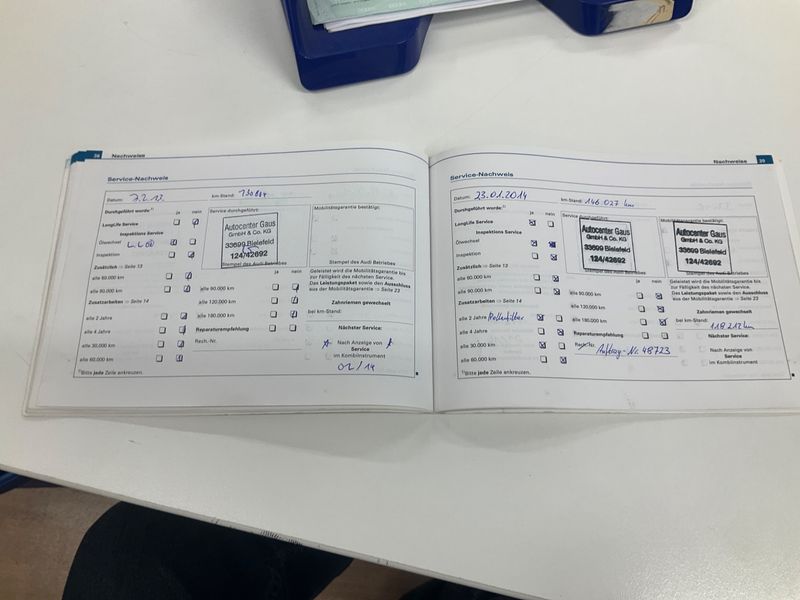 Nachweise
Service-Nachweis
Datum:
km-Stand:
Durchgeführt wurde:
ja nein
LongLife Service
Inspektions Service
Ölwechsel
Inspektion
Zusätzlich ⇒ Seite 13
alle 60.000 km
alle 90.000 km
Zusatzarbeiten ⇒ Seite 14
alle 2 Jahre
alle 4 Jahre
alle 30.000 km
alle 60.000 km
¹⁾Bitte jede Zeile ankreuzen.
Service durchgeführt:
Autocenter Gaus
GmbH & Co. KG
33699 Bielefeld
124/42692
Stempel des Audi Betriebes
ja nein
alle 90.000 km
alle 120.000 km
alle 180.000 km
Reparaturempfehlung
Rech.-Nr.
Mobilitätsgarantie bestätigt:
Stempel des Audi Betriebes
Geleistet wird die Mobilitätsgarantie bis
zur Fälligkeit des nächsten Service.
Das Leistungspaket sowie den Ausschluss
aus der Mobilitätsgarantie ⇒ Seite 23
Zahnriemen gewechselt
bei km-Stand:
Nächster Service:
Nach Anzeige von
Service
im Kombiinstrument
02/14
Nachweise 39
Service-Nachweis
Datum: 23.01.2014
km-Stand: 146 027 km
Durchgeführt wurde:
ja nein
LongLife Service
Inspektions Service
Ölwechsel
Inspektion
Zusätzlich ⇒ Seite 13
alle 60.000 km
alle 90.000 km
Zusatzarbeiten ⇒ Seite 14
alle 2 Jahre Pollenfilter
alle 4 Jahre
alle 30.000 km
alle 60.000 km
¹⁾Bitte jede Zeile ankreuzen.
Service durchgeführt:
Autocenter Gaus
GmbH & Co. KG
33699 Bielefeld
124/42692
Stempel des Audi Betriebes
ja nein
alle 90.000 km
alle 120.000 km
alle 180.000 km
Reparaturempfehlung
Rech.-Nr. Auftrag-Nr. 48723
Mobilitätsgarantie bestätigt:
Autocenter Gaus
GmbH & Co. KG
33699 Bielefeld
124/42692
Stempel des Audi Betriebes
Geleistet wird die Mobilitätsgarantie bis
zur Fälligkeit des nächsten Service.
Das Leistungspaket sowie den Ausschluss
aus der Mobilitätsgarantie ⇒ Seite 23
Zahnriemen gewechselt
bei km-Stand: 118 212 km
Nächster Service:
Nach Anzeige von
Service
im Kombiinstrument